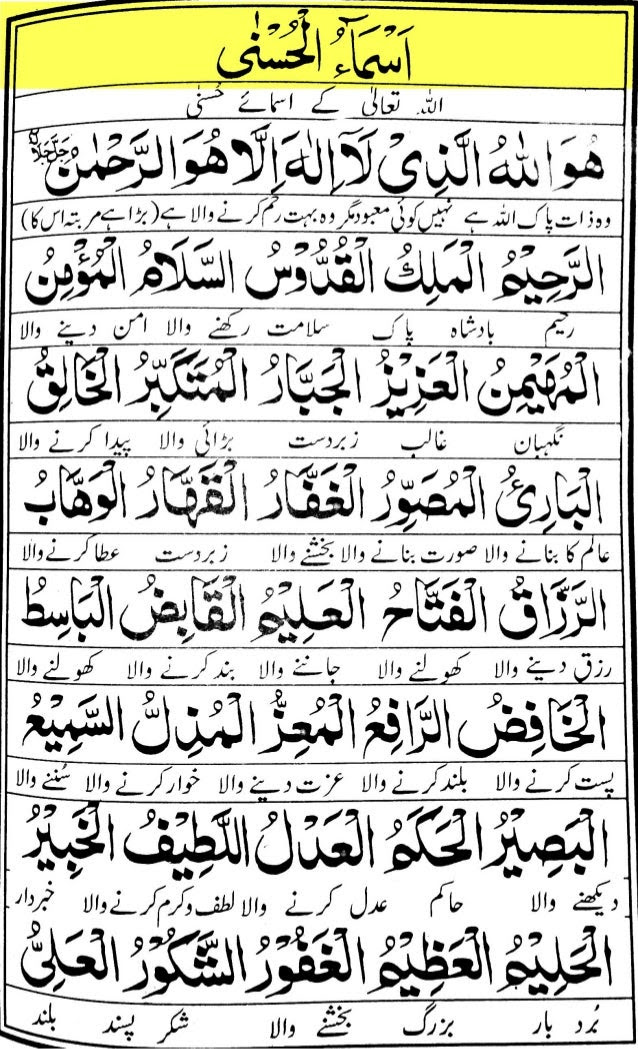 اَسْمَآءُ الْحُسْنٰی
اللہ تعالیٰ کے اسمائے حُسنٰی
هُوَ اللّٰهُ الَّذِیْ لَآ اِلٰهَ اِلَّا هُوَ الرَّحْمٰنُ جَلَّ جَلَالُهٗ
وہ ذات پاک اللہ ہے نہیں کوئی معبود مگر وہ بہت رحم کرنے والا ہے (بڑا ہے مرتبہ اس کا)
الرَّحِیْمُ الْمَلِكُ الْقُدُّوْسُ السَّلَامُ الْمُؤْمِنُ
رحیم بادشاہ پاک سلامت رکھنے والا امن دینے والا
الْمُهَیْمِنُ الْعَزِیْزُ الْجَبَّارُ الْمُتَكَبِّرُ الْخَالِقُ
نگہبان غالب زبردست بڑائی والا پیدا کرنے والا
الْبَارِئُ الْمُصَوِّرُ الْغَفَّارُ الْقَهَّارُ الْوَهَّابُ
عالم کا بنانے والا صورت بنانے والا بخشنے والا زبردست عطا کرنے والا
الرَّزَّاقُ الْفَتَّاحُ الْعَلِیْمُ الْقَابِضُ الْبَاسِطُ
رزق دینے والا کھولنے والا جاننے والا بند کرنے والا کھولنے والا
الْخَافِضُ الرَّافِعُ الْمُعِزُّ الْمُذِلُّ السَّمِیْعُ
پست کرنے والا بلند کرنے والا عزت دینے والا خوار کرنے والا سُننے والا
الْبَصِیْرُ الْحَكَمُ الْعَدْلُ اللَّطِیْفُ الْخَبِیْرُ
دیکھنے والا حاکم عدل کرنے والا لطف و کرم کرنے والا خبردار
الْحَلِیْمُ الْعَظِیْمُ الْغَفُوْرُ الشَّكُوْرُ الْعَلِیُّ
بُرد بار بزرگ بخشنے والا شکر پسند بلند